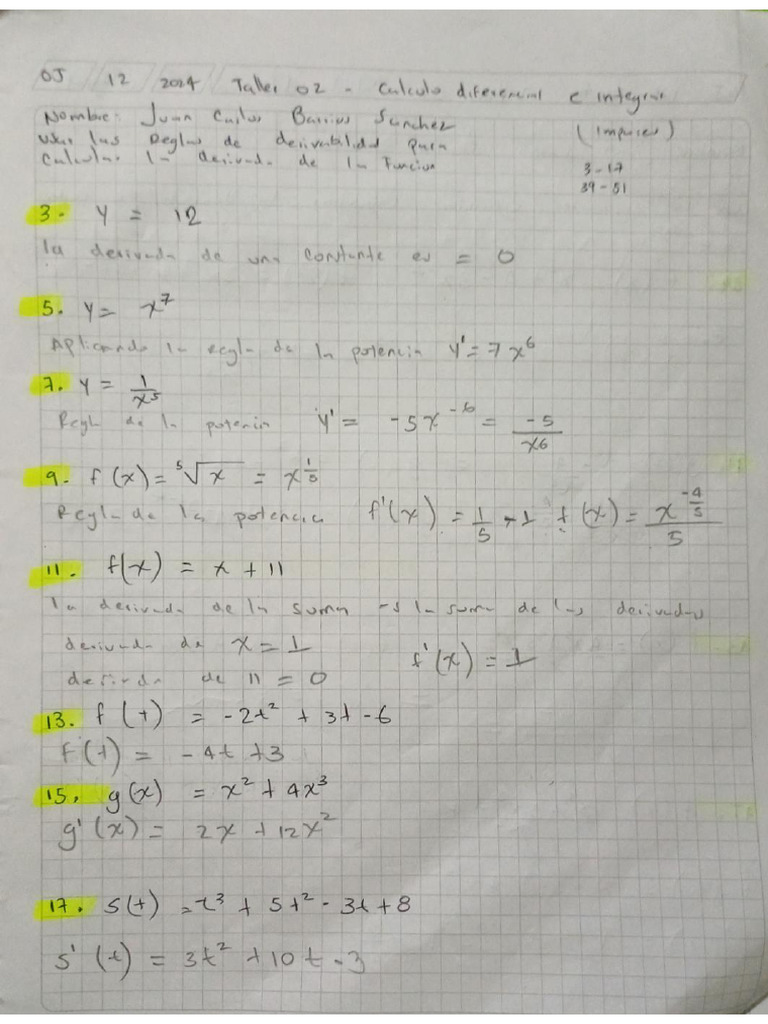 05 12 2024 Taller 02 - Calculo diferencial e integral
Nombre: Juan Carlos Barrios Sanchez (Impares)
usar las Reglas de derivabilidad para 3-17
Calcular la derivada de la Funcion 39-51
3. y = 12
la derivada de una constante es = 0
5. y = x⁷
Aplicando la regla de la potencia y' = 7x⁶
7. y = 1/x⁵
Regla de la potencia y' = -5x⁻⁶ = -5/x⁶
9. f(x) = ⁵√x = x^(1/5)
Regla de la potencia f'(x) = 1/5 - 1 f(x) = x^(-4/5)/5
11. f(x) = x + 11
la derivada de la suma es la suma de las derivadas
derivada de x = 1 f'(x) = 1
derivda de 11 = 0
13. f(t) = -2t² + 3t - 6
f'(t) = -4t + 3
15. g(x) = x² + 4x³
g'(x) = 2x + 12x²
17. s(t) = t³ + 5t² - 3t + 8
s'(t) = 3t² + 10t - 3